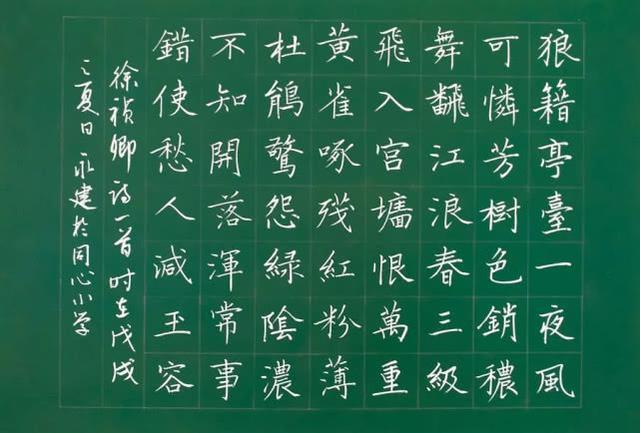 狼籍亭臺一夜風
可憐芳樹色銷穠
舞飜江浪春三級
飛入宮墻恨萬重
黃雀啄殘紅粉薄
杜鵑驚怨綠陰濃
不知開落渾常事
錯使愁人減玉容
徐禎卿詩一首时在戊戌
之夏日 永建於同心小学